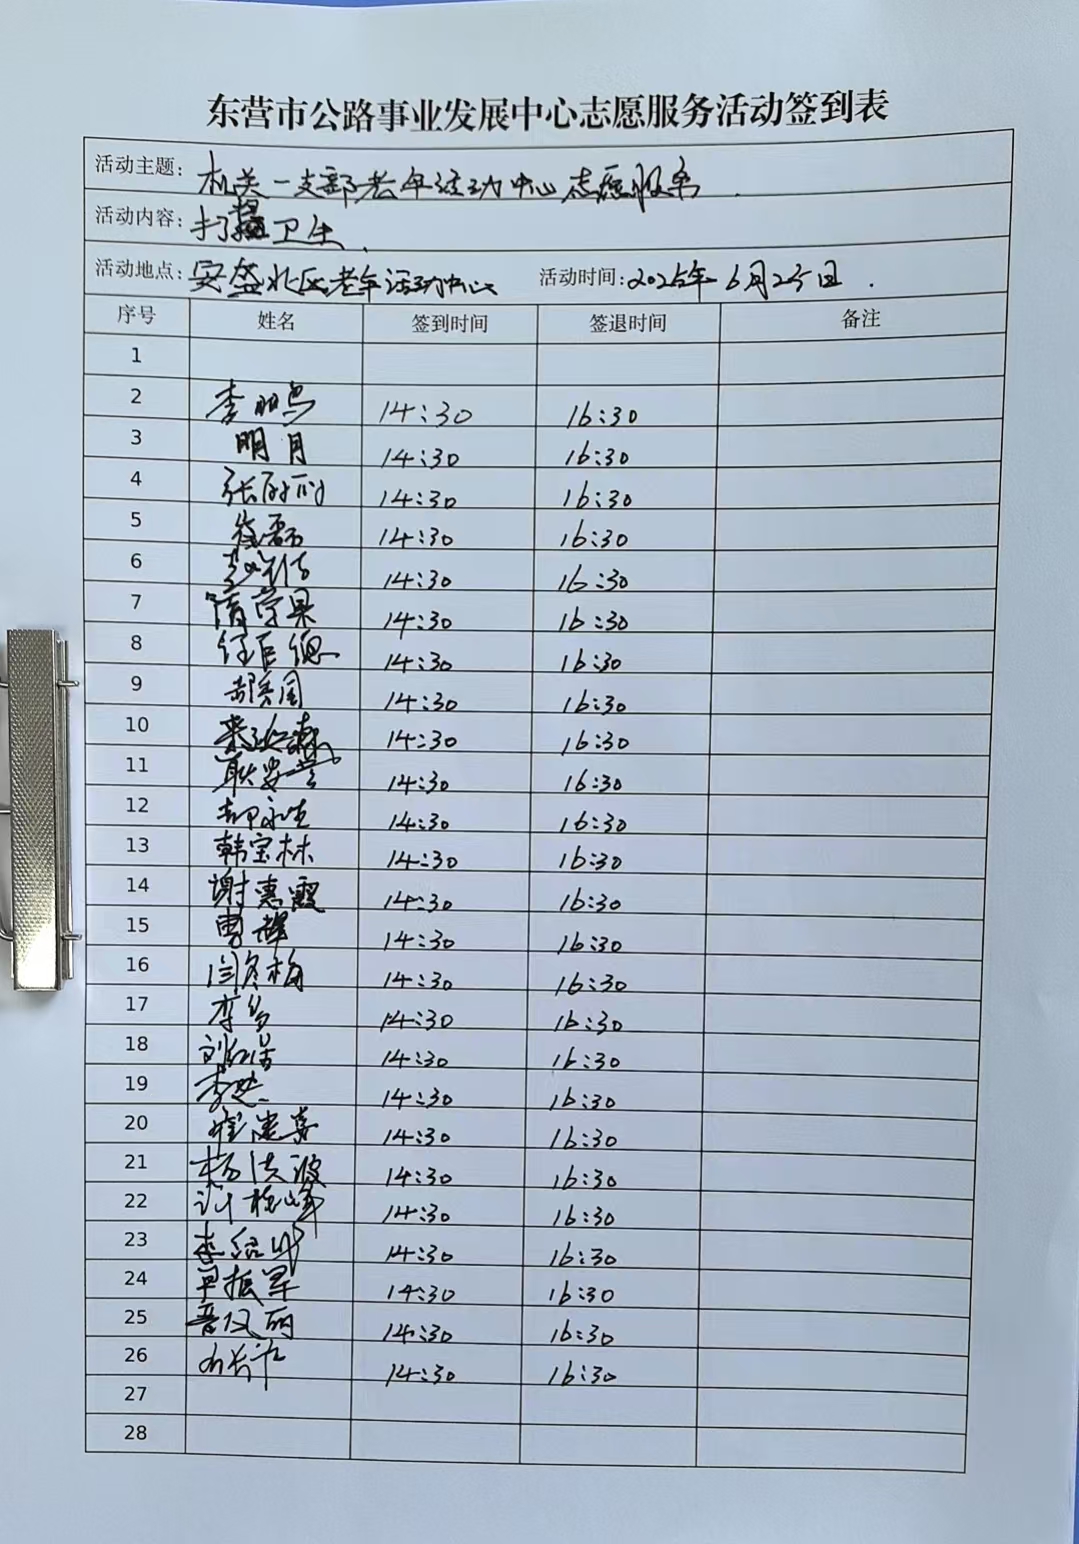 东营市公路事业发展中心志愿服务活动签到表
活动主题: 机关一支部老年活动中心志愿服务.
活动内容: 打扫卫生.
活动地点: 安盛北区老年活动中心 活动时间: 2025年6月25日.
序号 姓名 签到时间 签退时间 备注
1
2 李 14:30 16:30
3 明月 14:30 16:30
4 张 14:30 16:30
5 磊 14:30 16:30
6 14:30 16:30
7 隋学果 14:30 16:30
8 任巨德 14:30 16:30
9 14:30 16:30
10 14:30 16:30
11 耿安 14:30 16:30
12 永生 14:30 16:30
13 韩宝林 14:30 16:30
14 谢惠霞 14:30 16:30
15 曹辉 14:30 16:30
16 闫冬梅 14:30 16:30
17 李 14:30 16:30
18 刘红 14:30 16:30
19 李 14:30 16:30
20 崔 14:30 16:30
21 杨洪波 14:30 16:30
22 桂峰 14:30 16:30
23 李绍 14:30 16:30
24 振军 14:30 16:30
25 丽 14:30 16:30
26 14:30 16:30
27
28